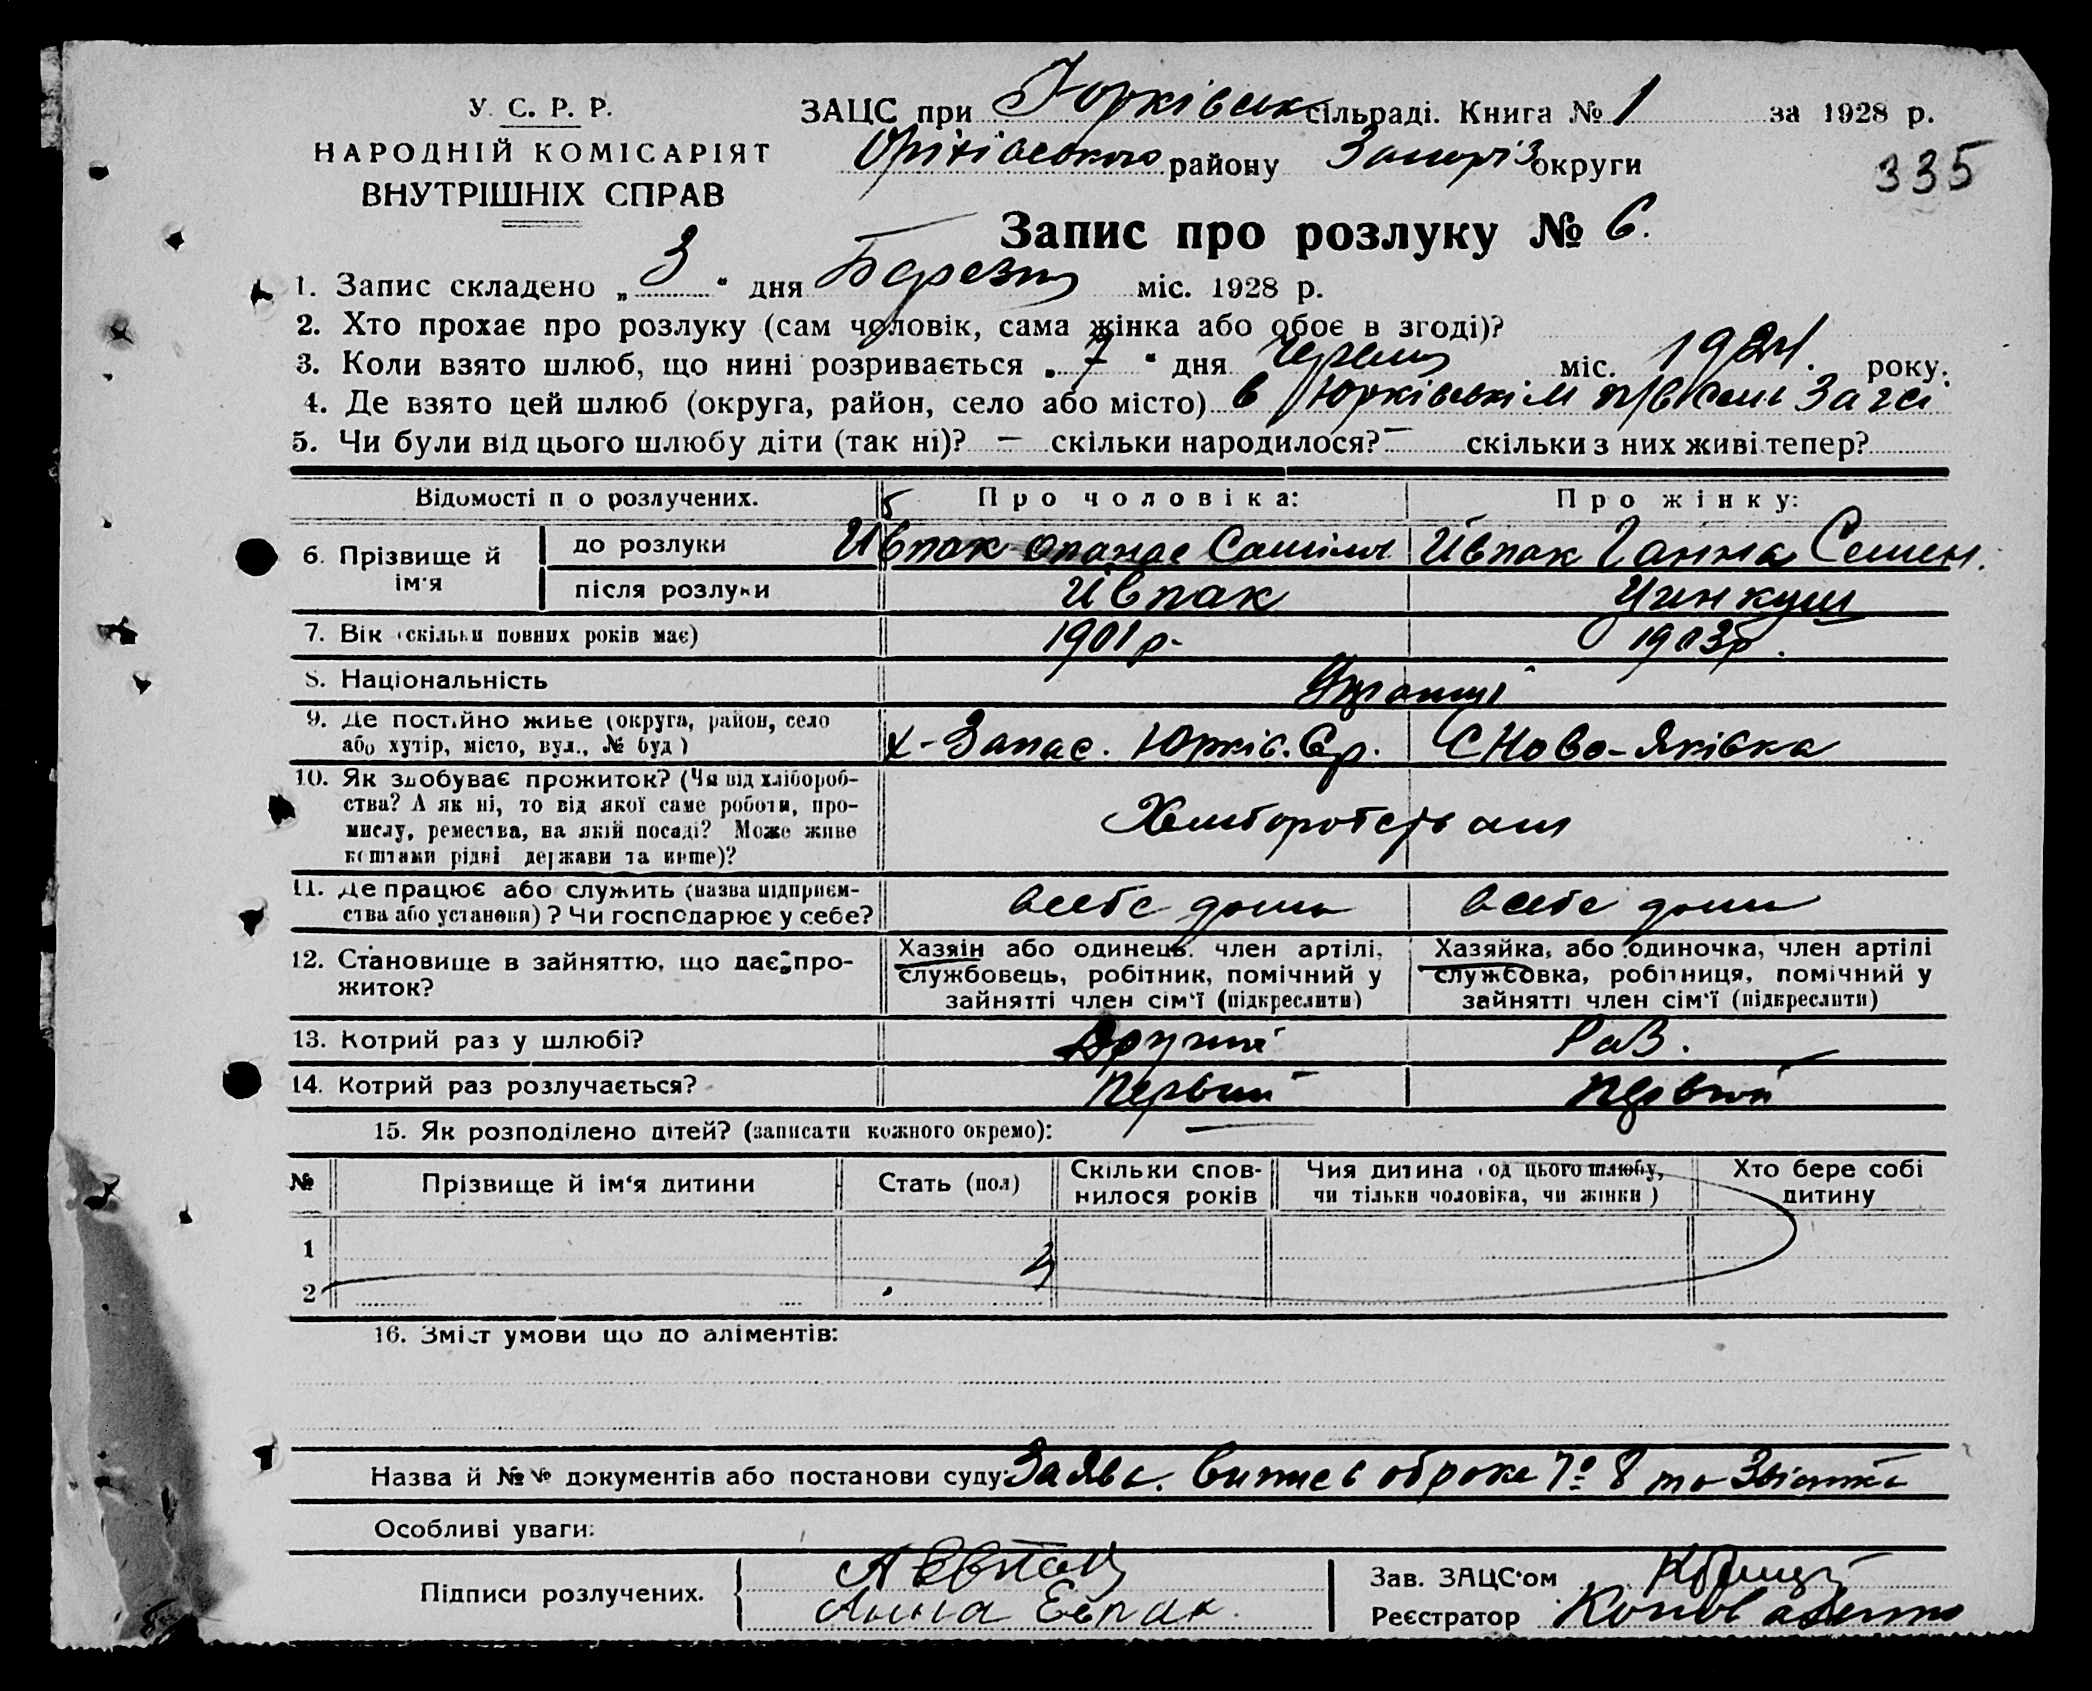 У. С. Р. Р.
НАРОДНІЙ КОМІСАРІЯТ
ВНУТРІШНІХ СПРАВ
ЗАЦС при Юрківськ сільраді. Книга № 1 за 1928 р.
Оріхівського району Запоріз округи
335
Запис про розлуку № 6.
1. Запис складено „ 3 " дня Березня міс. 1928 р.
2. Хто прохає про розлуку (сам чоловік, сама жінка або обоє в згоді)?
3. Коли взято шлюб, що нині розривається „ 7 " дня міс. 1924. року.
4. Де взято цей шлюб (округа, район, село або місто) в Юрківськім Загсі
5. Чи були від цього шлюбу діти (так ні)? — скільки народилося? — скільки з них живі тепер?
Відомості п о розлучених.
Про чоловіка:
Про жінку:
6. Прізвище й ім'я
до розлуки
Ивпак Опанас
Ивпак Ганна Семен.
після розлуки
Ивпак
7. Вік (скільки повних років має)
1901 р.
1903 р.
8. Національність
9. Де постійно живе (округа, район, село
або хутір, місто, вул., № буд)
х-Запас. Юрків. Ср.
С Ново-Яківка
10. Як здобуває прожиток? (Чи від хлібороб-
ства? А як ні, то від якої саме роботи, про-
мислу, ремества, на якій посаді? Може живе
коштами рідні держави та инше)?
11. Де працює або служить (назва підприєм-
ства або установи)? Чи господарює у себе?
всебе дома
всебе дома
12. Становище в зайняттю, що дає про-
житок?
Хазяїн або одинець. член артілі,
службовець, робітник, помічний у
зайнятті член сім'ї (підкреслити)
Хазяйка, або одиночка, член артілі
службовка, робітниця, помічний у
зайнятті член сім'ї (підкреслити)
13. Котрий раз у шлюбі?
Другий
Раз.
14. Котрий раз розлучається?
Первый
Первый
15. Як розподілено дітей? (записати кожного окремо):
№
Прізвище й ім'я дитини
Стать (пол)
Скільки спов-
нилося років
Чия дитина (од цього шлюбу,
чи тільки чоловіка, чи жінки)
Хто бере собі
дитину
1
2
16. Зміст умови що до аліментів:
Назва й №№ документів або постанови суду: Заява. № 8
Особливі уваги:
Підписи розлучених.
А Євпак
Анна Евпак.
Зав. ЗАЦС'ом
Реєстратор